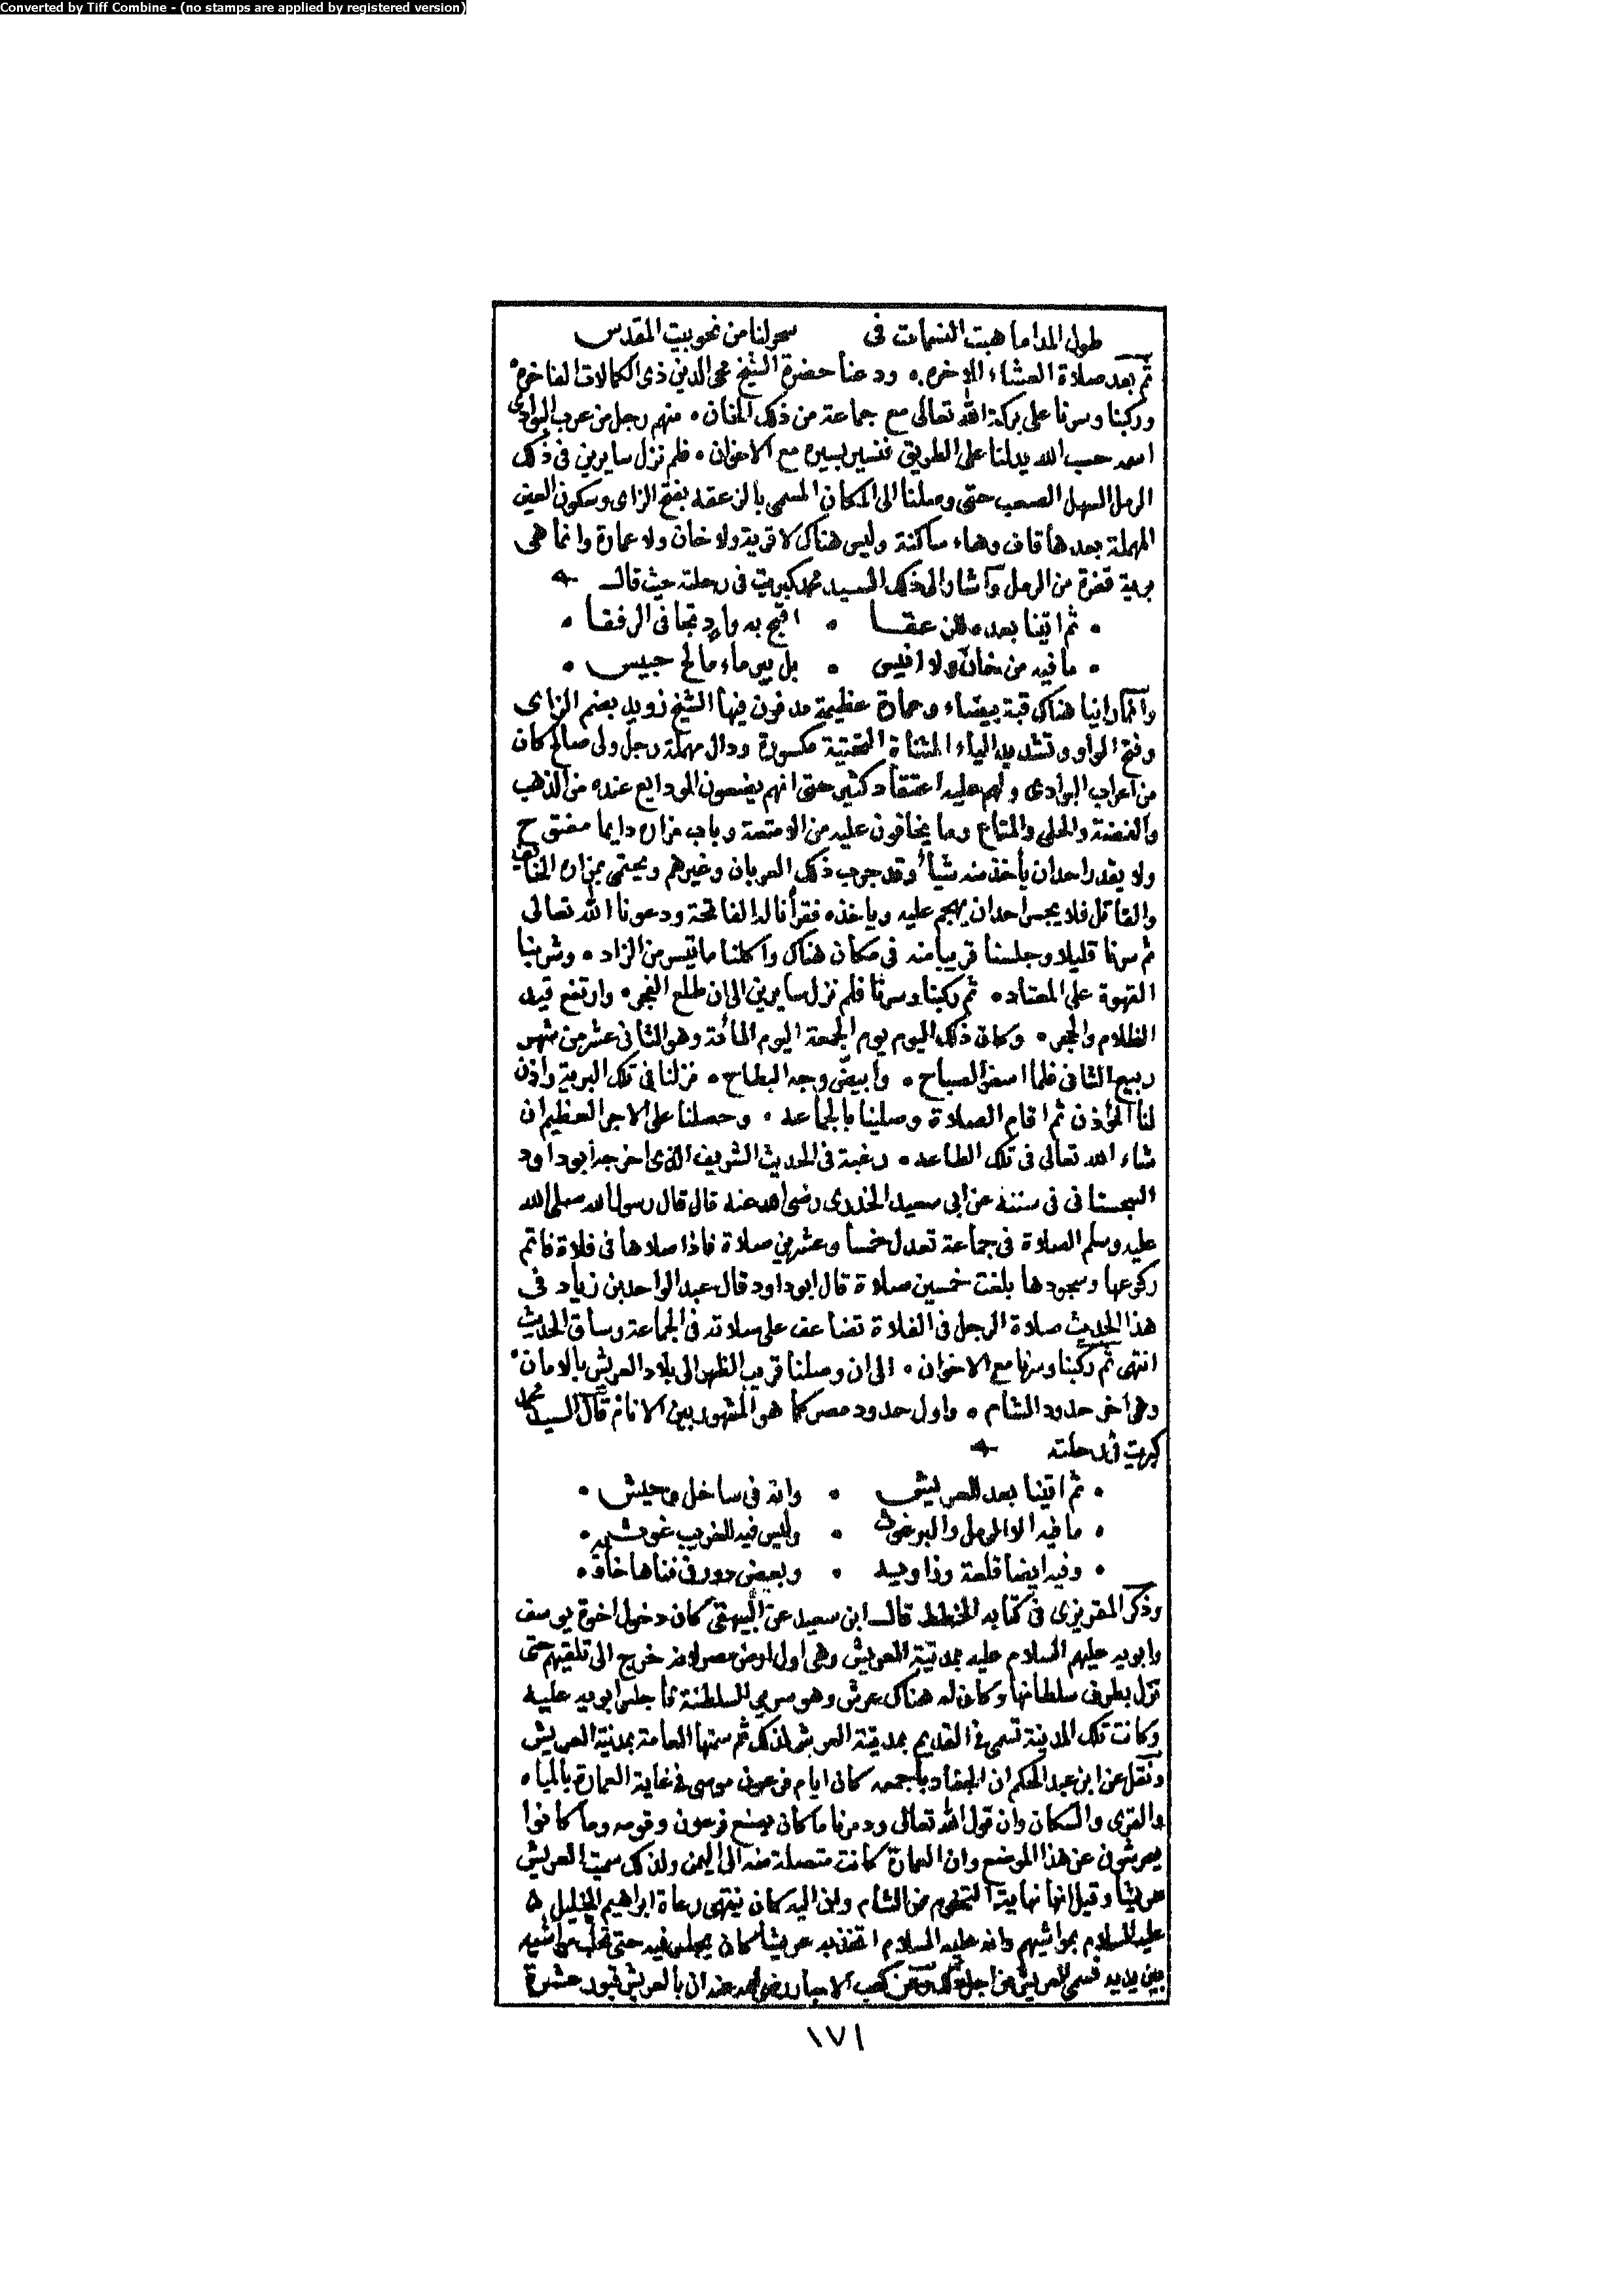 Converted by Tiff Combine - (no stamps are applied by registered version)
طول المدا ما هبت النسمات في سحولنا من نحو بيت المقدس
ثم بعد صلاة العشاء الاخره • ودعنا حضرة الشيخ محي الدين ذي الكمالات الفاخره •
وركبنا وسرنا على بركة الله تعالى مع جماعة من ذلك الخان • منهم رجل من عرب البوادي
اسمه حسب الله يدلنا على الطريق فنسير بسيره مع الاخوان • فلم نزل سايرين في ذلك
الرمل السهل الصعب حتى وصلنا الى المكان المسمى بالزعقه بفتح الزاى وسكون العين
المهملة بعدها قاف وهاء ساكنة وليس هناك لا قرية ولا خان ولا عمارة وانما هي
برية قفرة من الرمل وأشار الى ذلك السيد محمد كبريت في رحلته حيث قال
• ثم اتينا بعده للزعقا • اقبح به واد تجافى الرفقا •
• ما فيه من خان ولا انيس • بل بير ماء مالح حبيس •
وانما راينا هناك قبة بيضاء وعمارة عظيمة مدفون فيها الشيخ زويد بضم الزاى
وفتح الواو وتشديد الياء المثناة التحتية مكسورة ودال مهملة رجل ولى صالح كان
من اعراب البوادى ولهم عليه اعتقاد كثير حتى انهم يضعون الودايع عنده من الذهب
والفضة والحلى والمتاع وما يخافون عليه من الامتعة وباب مزاره دايما مفتوح
ولا يقدر احد ان يأخذ منه شيأ وقد جرب ذلك العربان وغيرهم ويحتمى بمزاره الخائف
والقاتل فلا يجسر احد ان يهجم عليه وياخذه فقرأنا له الفاتحة ودعونا الله تعالى
ثم سرنا قليلا وجلسنا قريبا منه في مكان هناك واكلنا ما تيسر من الزاد • وشربنا
القهوة على المعتاد • ثم ركبنا وسرنا فلم نزل سايرين الى ان طلع الفجر • وارتفع قيد
الظلام والحجر • وكان ذلك اليوم يوم الجمعة اليوم المائة وهو الثاني عشر من شهر
ربيع الثاني فلما اسفر الصباح • وابيض وجه البطاح • نزلنا في تلك البرية واذن
لنا المؤذن ثم اقام الصلاة وصلينا بالجماعه • وحصلنا على الاجر العظيم ان
شاء الله تعالى في تلك الطاعه • رغبة في الحديث الشريف الذي اخرجه أبو داود
السجستاني في سننه عن ابي سعيد الخدرى رضى الله عنه قال قال رسول الله صلى الله
عليه وسلم الصلاة في جماعة تعدل خمسا وعشرين صلاة فاذا صلاها في فلاة فاتم
ركوعها وسجودها بلغت خمسين صلاة قال ابو داود قال عبد الواحد بن زياد في
هذا الحديث صلاة الرجل في الفلاة تضاعف على صلاته في الجماعة وساق الحديث
انتهى ثم ركبنا وسرنا مع الاخوان • الى ان وصلنا قريب الظهر الى بلاد العريش بالامان •
وهي آخر حدود الشام • واول حدود مصر كما هو المشهور بين الانام قال السيد محمد
كبريت في رحلته
• ثم اتينا بعد للعريش • وانه في ساحل وحيش •
• ما فيه الا الرمل والبرغوث • وليس فيه للغريب غوث •
• وفيه ايضا قلعة وزاويه • وبعض دور في فناها خاويه •
وذكر المقريزى في كتابه الخطط قال ابن سعيد عن البيهقي كان دخول اخوة يوسف
وابويه عليهم السلام عليه بمدينة العريش وهي اول ارض مصر لانه خرج الى تلقيهم حتى
نزل بطرف سلطانها وكان له هناك عرش وهو سرير السلطنة فاجلس ابويه عليه
وكانت تلك المدينة تسمى في القديم بمدينة العرش لذلك ثم سمتها العامة بمدينة العريش
ونقل عن ابن عبد الحكم ان الجفار باجمعه كان ايام فرعون موسى في غاية العمارة بالمياه
والقرى والسكان وان قول الله تعالى ودمرنا ما كان يصنع فرعون وقومه وما كانوا
يعرشون عن هذا الموضع وان العمارة كانت متصلة منه الى اليمن ولذلك سميت العريش
عريشا وقيل انها نهاية التخوم من الشام وان اليه كان ينتهى رعاة ابراهيم الخليل
عليه السلام بمواشيهم وانه عليه السلام اتخذ به عريشا كان يجلس فيه حتى تحلب مواشيه
بين يديه فسمى العريش من اجل ذلك وعن كعب الاحبار رضى الله عنه ان بالعريش قبور عشرة
١٧١